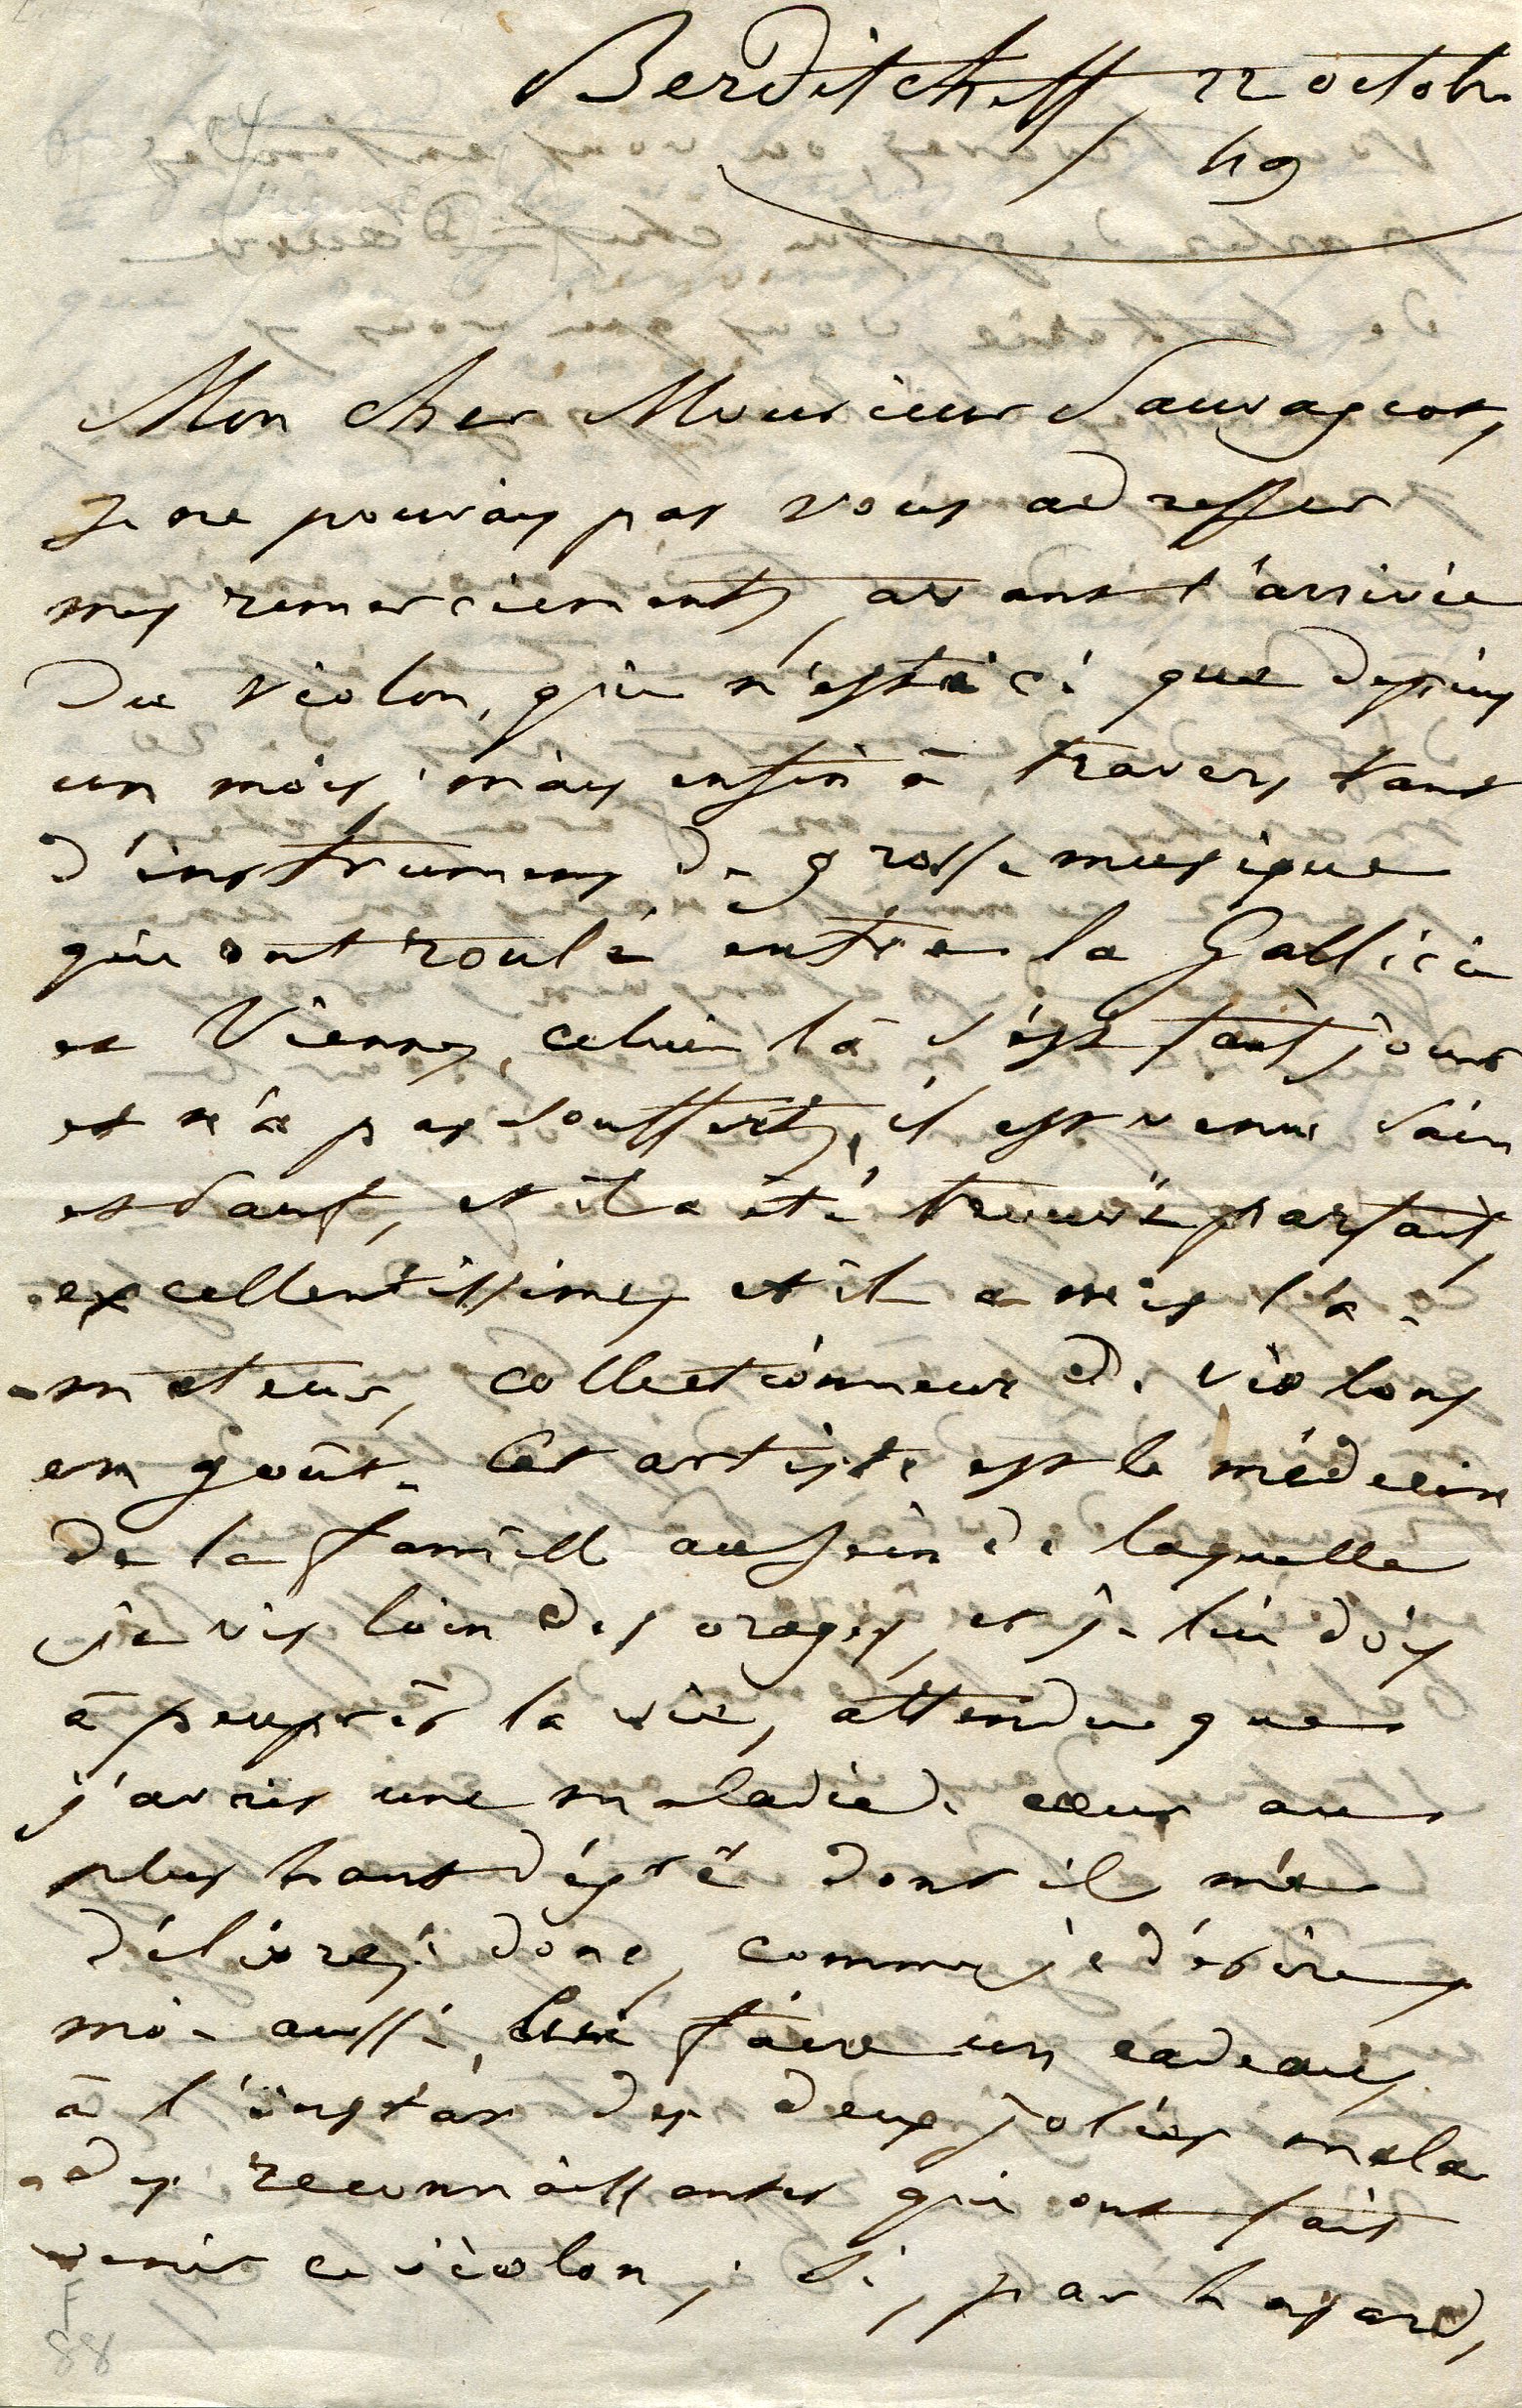 Berditcheff, 22 octobr
/49
Mon cher Monsieur Sauvageot,
Je ne pouvais pas vous adresser
mes remerciements avant l'arrivée
du violon, qui n'est ici que depuis
un mois; mais enfin à travers tant
d'instrumens de grosse musique
qui ont roulé entre la Gallicie
et Vienne, celui là s'est fait jour
et n'a pas souffert, il est venu sain
et sauf, et il a été trouvé parfait,
excellentissime, et il a mis l'a-
-mateur, collectionneur de violons
en goût. Cet artiste est le médecin
de la famille au sein de laquelle
je vis loin des orages, et je lui dois
à peu près la vie, attendu que
j'avais une maladie de cœur au
plus haut dégré dont il m'a
délivré; donc, comme je désire
moi aussi, lui faire un cadeau,
à l'instar des deux jolies mala
-des reconnaissantes qui ont fait
venir ce violon; si, par hasard,
F
88